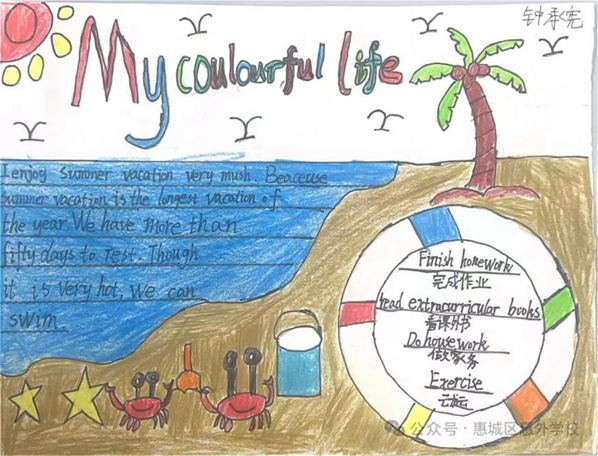 钟承宪
My coulourful life
I enjoy Summer vacation very mush. Beaceuse
Summer vacation is the longest vacation of
the year. We have more than
fifty days to rest. Though
it is very hot, we can
swim.
Finish homework
完成作业
read extracurricular books
看课外书
Do housework
做家务
Exercise
运动
公众号·惠城区惠外学校